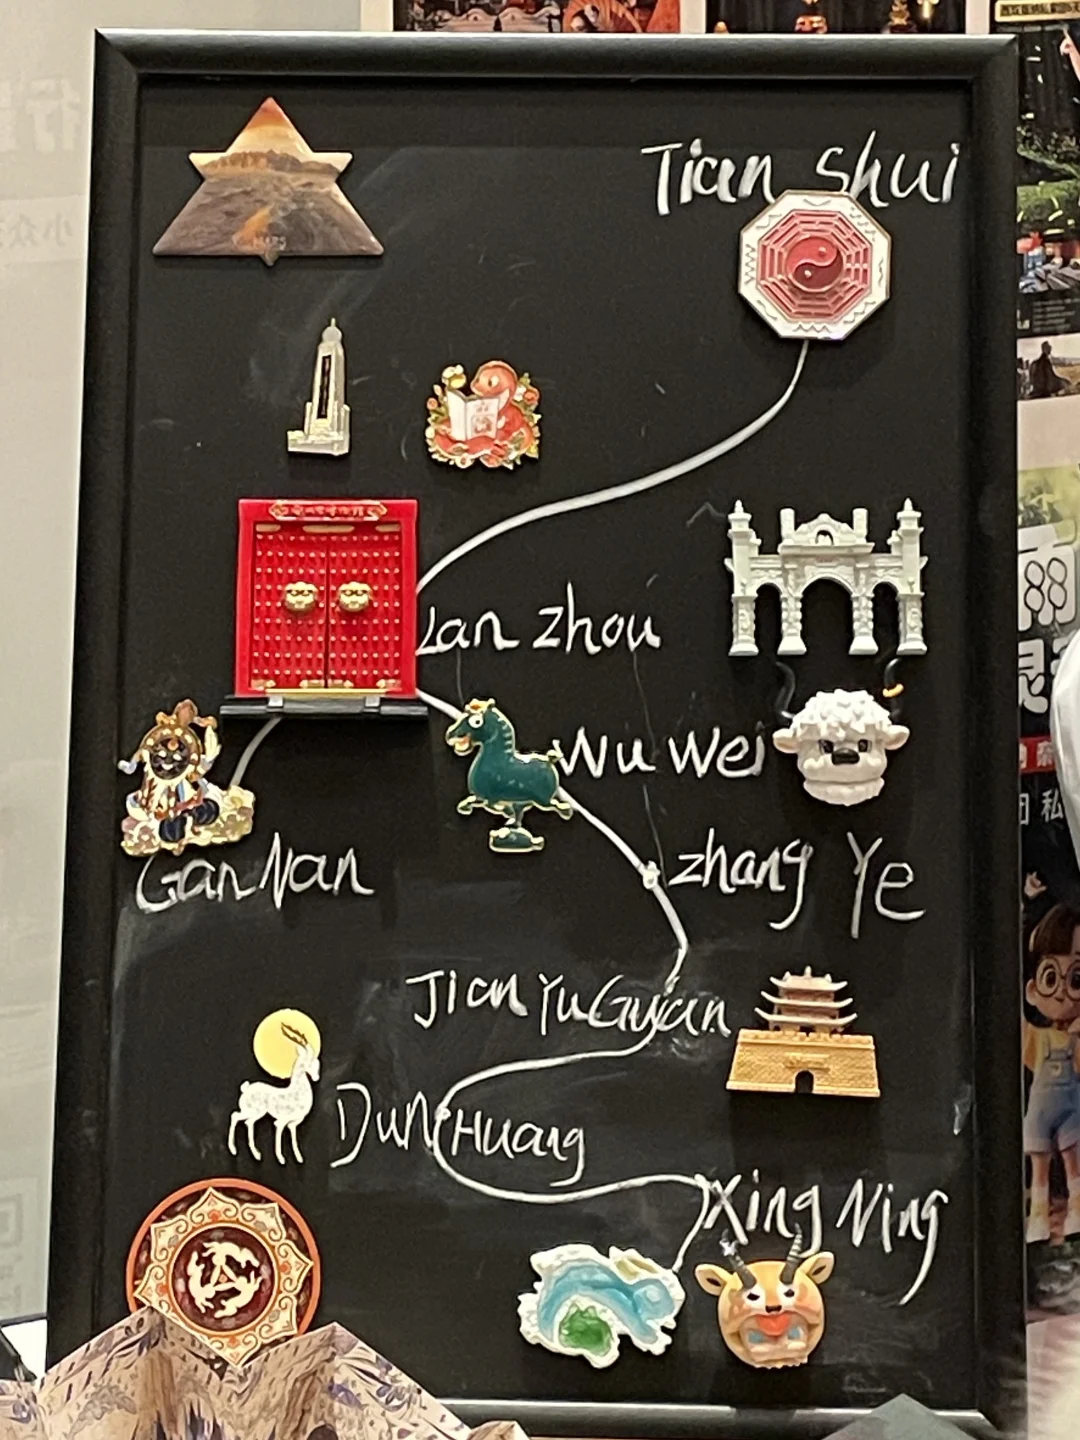 Tian Shui
Lan zhou
Wu Wei
GanNan
zhang Ye
Jian YuGuan
DunHuang
Xing Ning
雨
私
小众
行